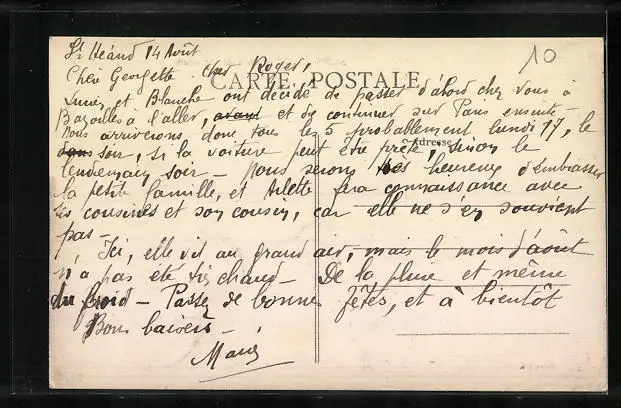 St Héand 14 Août
10
Chère Georgette cher Roger,
CARTE POSTALE
et Blanche ont décidé de passer d'abord chez vous à
Bazoilles à l'aller, avant et de continuer sur Paris ensuite -
Nous arriverons donc tous les 5 probablement lundi 17, le
Adresse
soir, si la voiture peut être prête, sinon le
lendemain soir - Nous serons très heureux d'embrasser
la petite famille, et Arlette fera connaissance avec
ses cousines et son cousin, car elle ne s'en souvient
pas -
Ici, elle vit au grand air, mais le mois d'août
n'a pas été très chaud - De la pluie et même
du froid - Passez de bonnes fêtes, et à bientôt
Bons baisers -